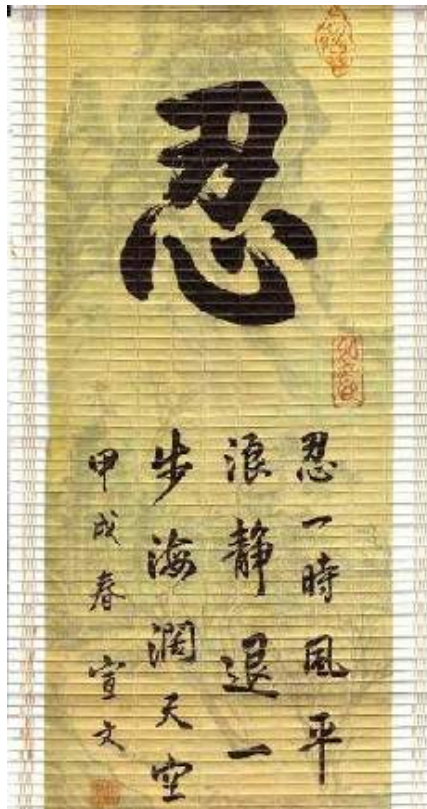 忍
忍一時風平
浪靜退一
步海濶天空
甲戌春宣文